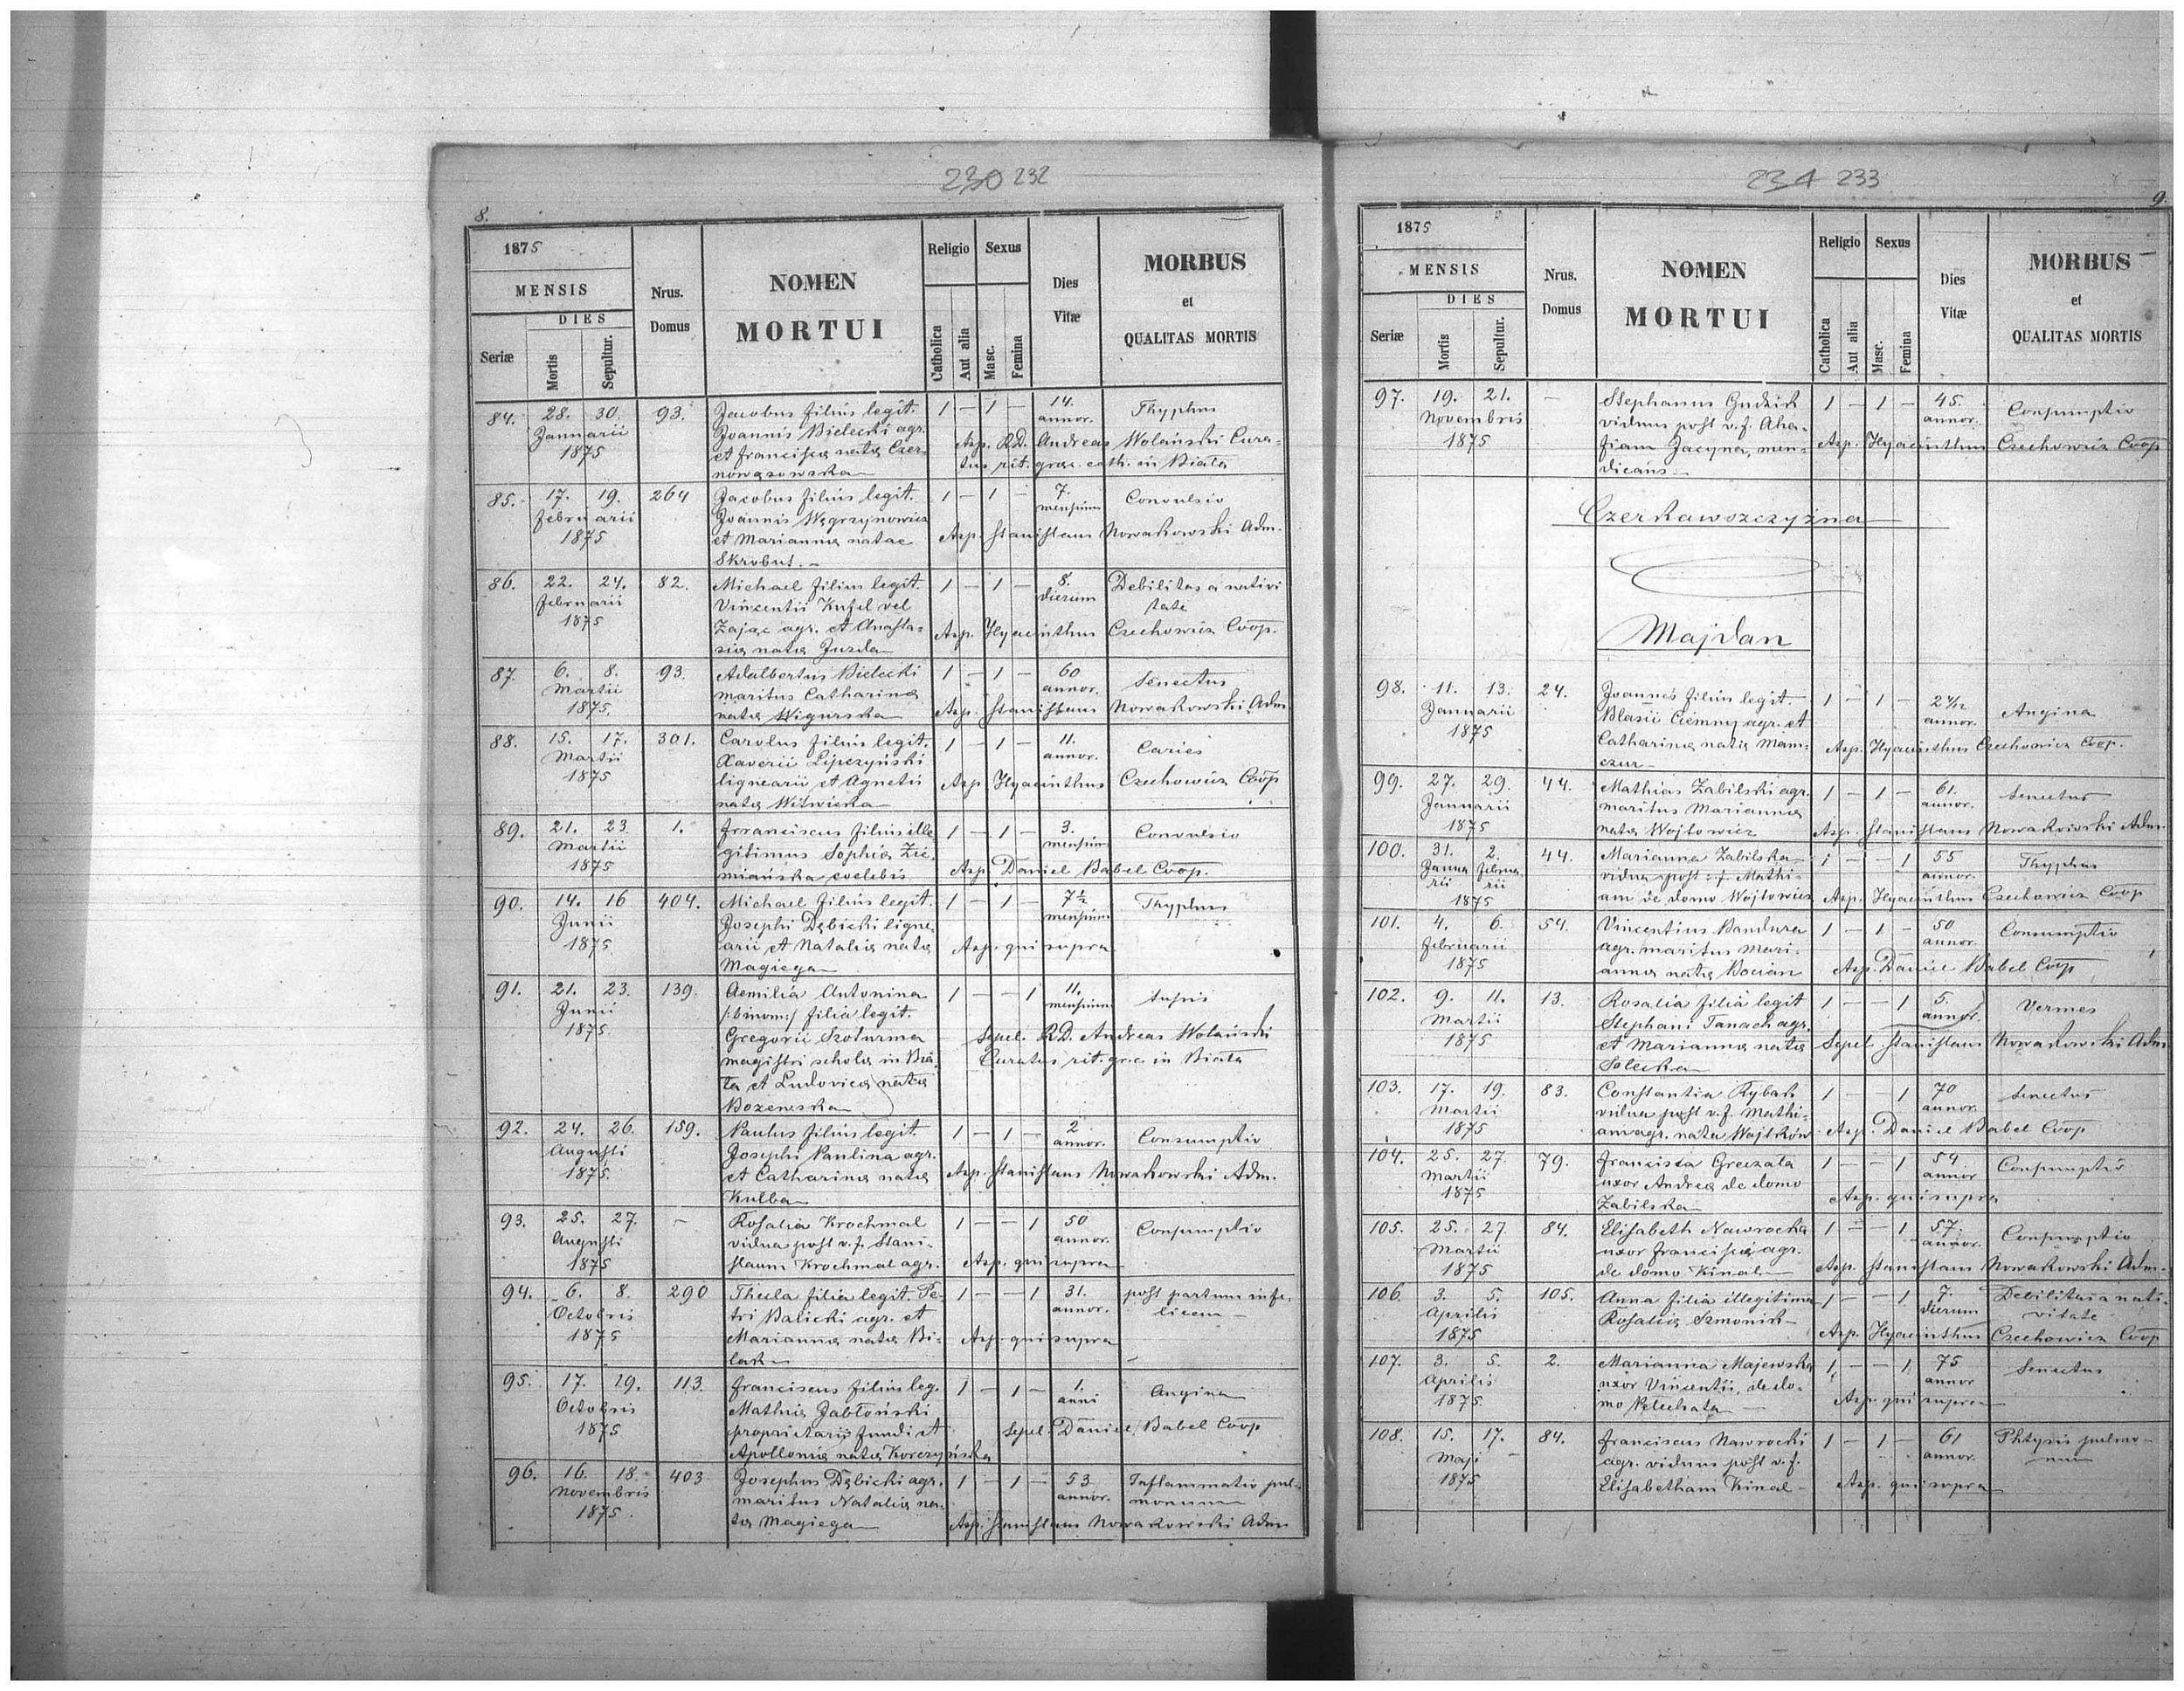 230 232
8.
1875
MENSIS
DIES
Seriæ
Mortis
Sepultur.
Nrus.
Domus
NOMEN
MORTUI
Religio
Catholica
Aut alia
Sexus
Masc.
Femina
Dies
Vitæ
MORBUS
et
QUALITAS MORTIS
84. 28. 30. 93. Jacobus filius legit. 1 – 1 – 14. Thyphus
Januarii Joannis Bielecki agr. annor.
1875 et Francisca nata Czer- Asp. RD. Andreas Wolański Cura-
nowąsowska tus rit. graec. cath. in Biała
85. 17. 19. 264 Jacobus filius legit. 1 – 1 – 7. Convulsio
Februarii Joannis Węgrzynowicz mensium
1875 et Marianna natae Asp. Stanislaus Nowakowski Adm.
Skrobut. –
86. 22. 24. 82. Michael filius legit. 1 – 1 – 8. Debilitas a nativi
Februarii Vincentii Kufel vel dierum tate
1875 Zając agr. et Anasta- Asp. Hyacinthus Czechowicz Coop.
sia nata Juzda
87. 6. 8. 93. Adalbertus Bielecki 1 – 1 – 60 Senectus
Martii maritus Catharina annor.
1875. nata Wigurska Asp. Stanislaus Nowakowski Adm
88. 15. 17. 301. Carolus filius legit. 1 – 1 – 11. Caries
Martii Xaverii Lipczyński annor.
1875 lignearii et Agnetis Asp Hyacinthus Czechowicz Coop
nata Witwicka
89. 21. 23. 1. Franciscus filius ille 1 – 1 – 3. Convulsio
Martii gitimus Sophia Zie- mensium
1875 miańska coelebis Asp Daniel Babel Coop.
90. 14. 16 404. Michael filius legit. 1 – 1 – 7½ Thyphus
Junii Josephi Dębicki ligne- mensium
1875. arii et Natalia nata Asp. qui supra
Magiega
91. 21. 23. 139. Aemilia Antonina 1 – – 1 11. tussis
Junii /:binom:/ filia legit. mensium
1875. Gregorii Szoturma Sepel. RD. Andreas Wolański
magistri schola in Bia- Curatus rit. grc. in Biała
ła et Ludovica nata
Bożewska
92. 24. 26. 159. Paulus filius legit. 1 – 1 – 2 Consumptio
Augusti Josephi Paulina agr. annor.
1875. et Catharina nata Asp. Stanislaus Nowakowski Adm.
Kulba
93. 25. 27. – Rosalia Krochmal 1 – – 1 50 Consumptio
Augusti vidua post v. f. Stani- annor.
1875 slaum Krochmal agr. Asp. qui supra
94. 6. 8. 290 Thecla filia legit. Pe- 1 – – 1 31. post partum infe-
Octobris tri Balicki agr. et annor. licem
1875 Marianna nata Bi- Asp. qui supra
lak
95. 17. 19. 113. Franciscus filius leg. 1 – 1 – 1. Angina
Octobris Mathia Jabłoński anni
1875 proprietarii fundi et Sepel. Daniel Babel Coop
Apollonia nata Korczyńska
96. 16. 18. 403 Josephus Dębicki agr. 1 – 1 – 53. Inflammatio pul-
Novembris maritus Natalia na- annor. monum
1875. ta Magiega Asp. Stanislaus Nowakowski Adm
234 233
9.
1875
MENSIS
DIES
Seriæ
Mortis
Sepultur.
Nrus.
Domus
NOMEN
MORTUI
Religio
Catholica
Aut alia
Sexus
Masc.
Femina
Dies
Vitæ
MORBUS
et
QUALITAS MORTIS
97. 19. 21. – Stephanus Gudzik 1 – 1 – 45. Consumptio
Novembris viduus post v. f. Aha- annor.
1875 fiam Jacyna, men- Asp. Hyacinthus Czechowicz Coop
dicans
Czerkawszczyzna
Majdan
98. 11. 13. 24. Joannes filius legit. 1 – 1 – Angina
Januarii Blasii Ciemny agr. et annor.
1875 Catharina nata Mam- Asp. Hyacinthus Czechowicz Coop.
czur
99. 27. 29. 44. Mathias Zabilski agr. 1 – 1 – 61. Senectus
Januarii maritus Marianna annor.
1875 nata Wojtowicz Asp. Stanislaus Nowakowski Adm
100. 31. 2. 44. Marianna Zabilska 1 – – 1 55 Thyphus
Janua Februa vidua post v. f. Mathi- annor.
rii rii
1875 am de domo Wojtowicz Asp. Hyacinthus Czechowicz Coop
101. 4. 6. 54. Vincentius Bandura 1 – 1 – 50 Consumptio
Februarii agr. maritus Mari- annor.
1875 anna nata Bocian Asp. Daniel Babel Coop
102. 9. 11. 13. Rosalia filia legit 1 – – 1 5. Vermes
Martii Stephani Tanach agr. annor.
1875 et Marianna nata Sepel. Stanislaus Nowakowski Adm
Solecka
103. 17. 19. 83. Constantia Rybak 1 – – 1 70 Senectus
Martii vidua post v. f. Mathi- annor.
1875 am agr. nata Wojtków Asp. Daniel Babel Coop
104. 25. 27. 79. Francisca Greczała 1 – – 1 54 Consumptio
Martii uxor Andrea de domo annor
1875 Zabilska Asp. qui supra
105. 25. 27 84. Elisabeth Nawrocka 1 – – 1 57. Consumptio
Martii uxor Francisci agr. annor.
1875 de domo Kinal Asp. Stanislaus Nowakowski Adm.
106. 3. 5. 105. Anna filia illegitima 1 – – 1 7. Debilitas a nati-
Aprilis Rosalia Szmonik dierum vitate
1875 Asp. Hyacinthus Czechowicz Coop
107. 3. 5. 2. Marianna Majewska 1 – – 1 75 Senectus
Aprilis uxor Vincentii, de do- annor
1875. mo Petechata Asp. qui supra
108. 15. 17. 84. Franciscus Nawrocki 1 – 1 – 61 Phtysis pulmo-
Maji agr. viduus post v. f. annor. num
1875 Elisabetham Kinal Asp. qui supra